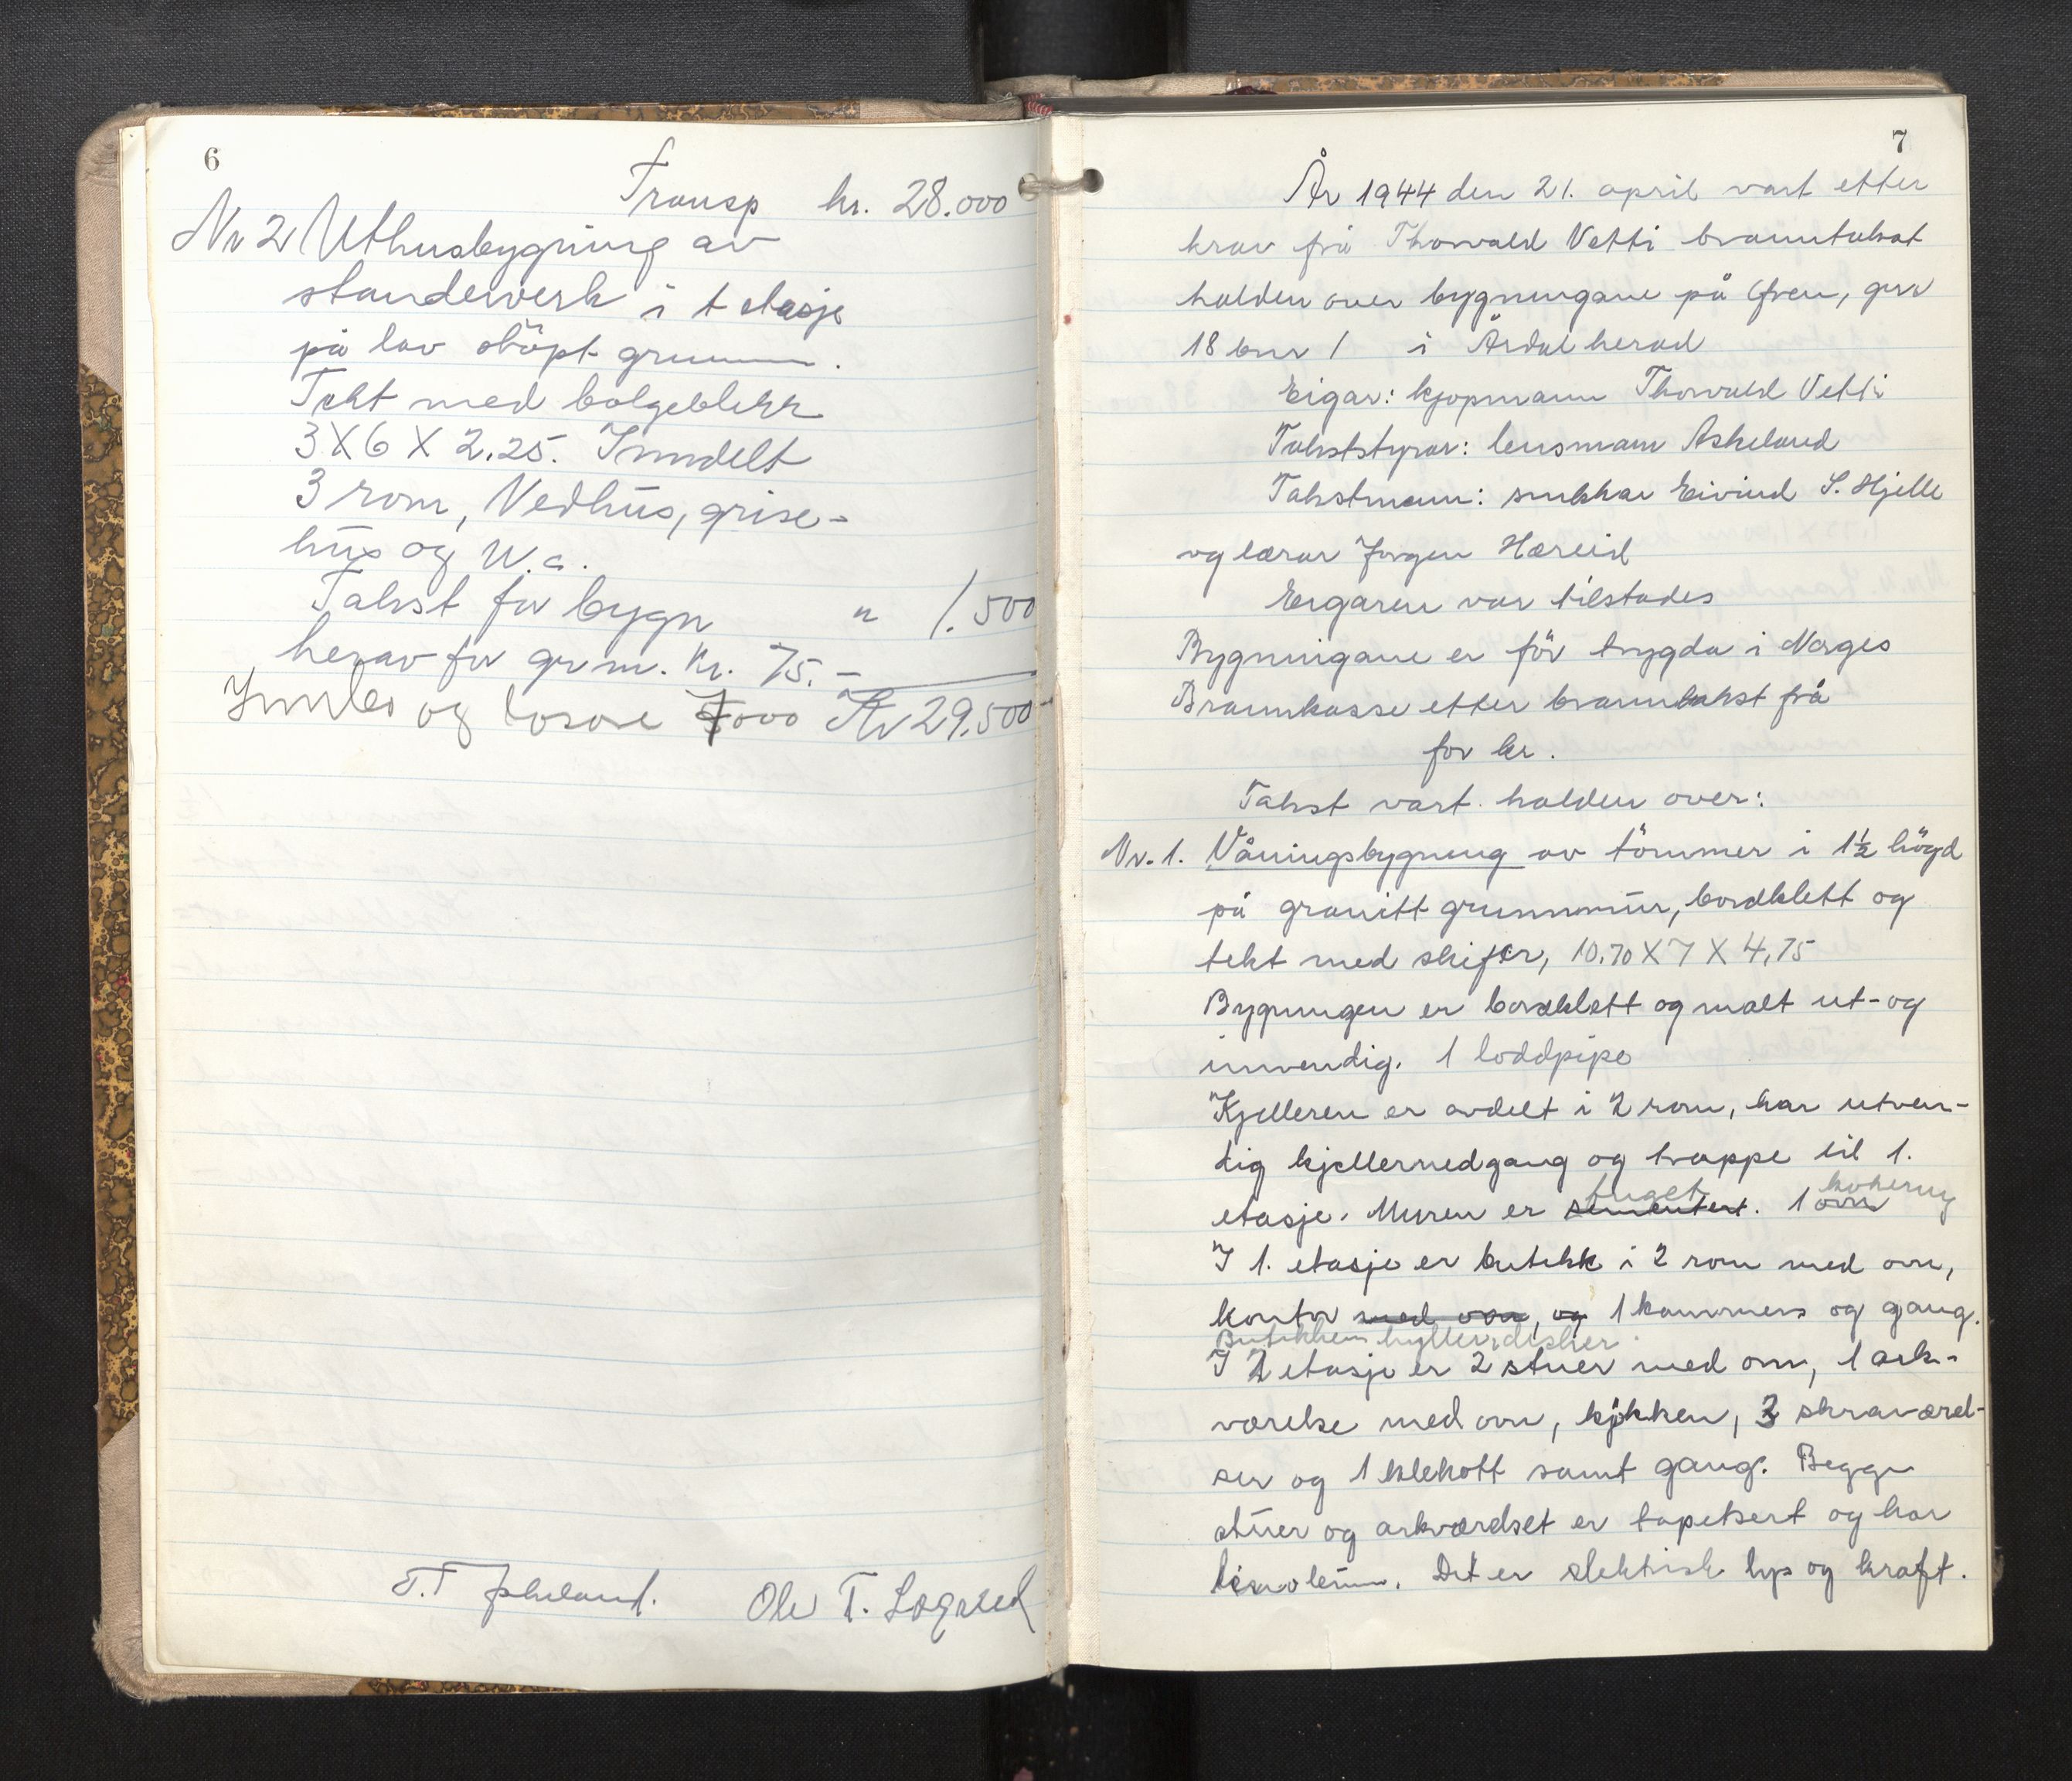 6
Transp kr. 28.000
Nr 2 Uthusbygning av
standerverk i 1 etasje
på lav stöpt grunnm.
Tekt med bolgeblekk
3 X 6 X 2.25. Inndelt
3 rom, Vedhus, grise-
hus og W.c.
Takst for bygn " 1.500
herav for gr m. kr. 75.-
og losöre 7000 Kr 29.500
Ole T. Lægreid
7
År 1944 den 21. april vart etter
krav frå Thorvald Vetti branntakst
halden over bygningane på Øren, gnr
18 bnr 1 i Årdal herad
Eigar: kjøpmann Thorvald Vetti
Takststyrar: lensmann Askeland
Takstmenn: snikkar Eivind S. Hjelle
og lærar Jørgen Hæreid
Eigaren var tilstades
Bygningane er för trygda i Norges
Brannkasse etter branntakst frå
for kr.
Takst vart halden over:
Nr. 1. Våningsbygning av tömmer i 1½ högd
på granitt grunnmur, bordklett og
tekt med skifer, 10.70 X 7 X 4,75
Bygningen er bordklett og malt ut- og
innvendig. 1 loddpipe
Kjelleren er avdelt i 2 rom, har utven-
dig kjellernedgang og trappe til 1.
fuget kokeruy
etasje. Muren er sementert. 1 ovn
I 1. etasje er butikk i 2 rom med ovn,
kontor med ovn, og 1 kammers og gang.
Butikken hyller, disker.
I 2 etasje er 2 stuer med ovn, 1 ark-
værelse med ovn, kjøkken, 3 skraværel-
ser og 1 klekott samt gang. Begge
stuer og arkværelset er tapetsert og har
linoleum. Det er elektrisk lys og kraft.